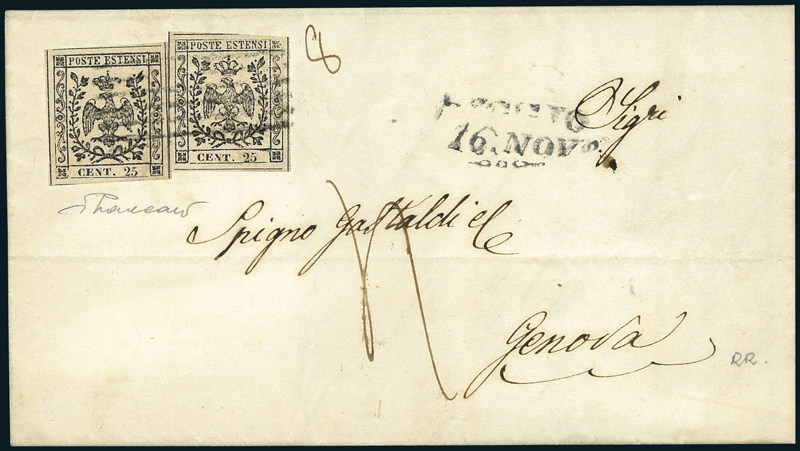 POSTE ESTENSI
CENT. 25
POSTE ESTENSI
CENT. 25
8
16. NOV
Sigri
Spigno Gastaldi e C
Genova
RR.